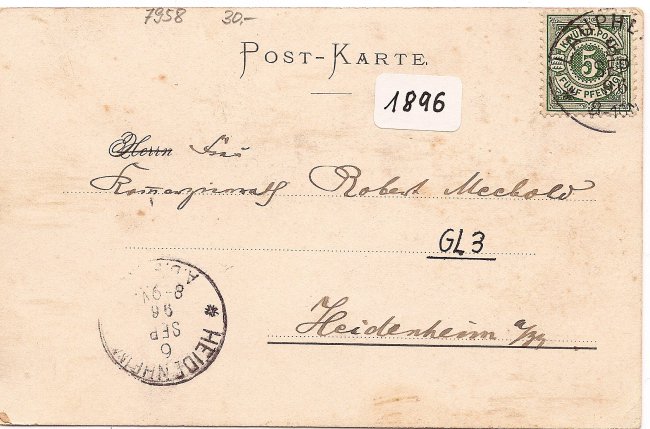 7958 30.-
POST-KARTE.
K. WÜRTT. POST
5
FÜNF PFENNIG
1896
Herrn Frau
Robert Meebold
GL3
Heidenheim a/Bz
HEIDENHEIM
6
SEP
96
8-9V.